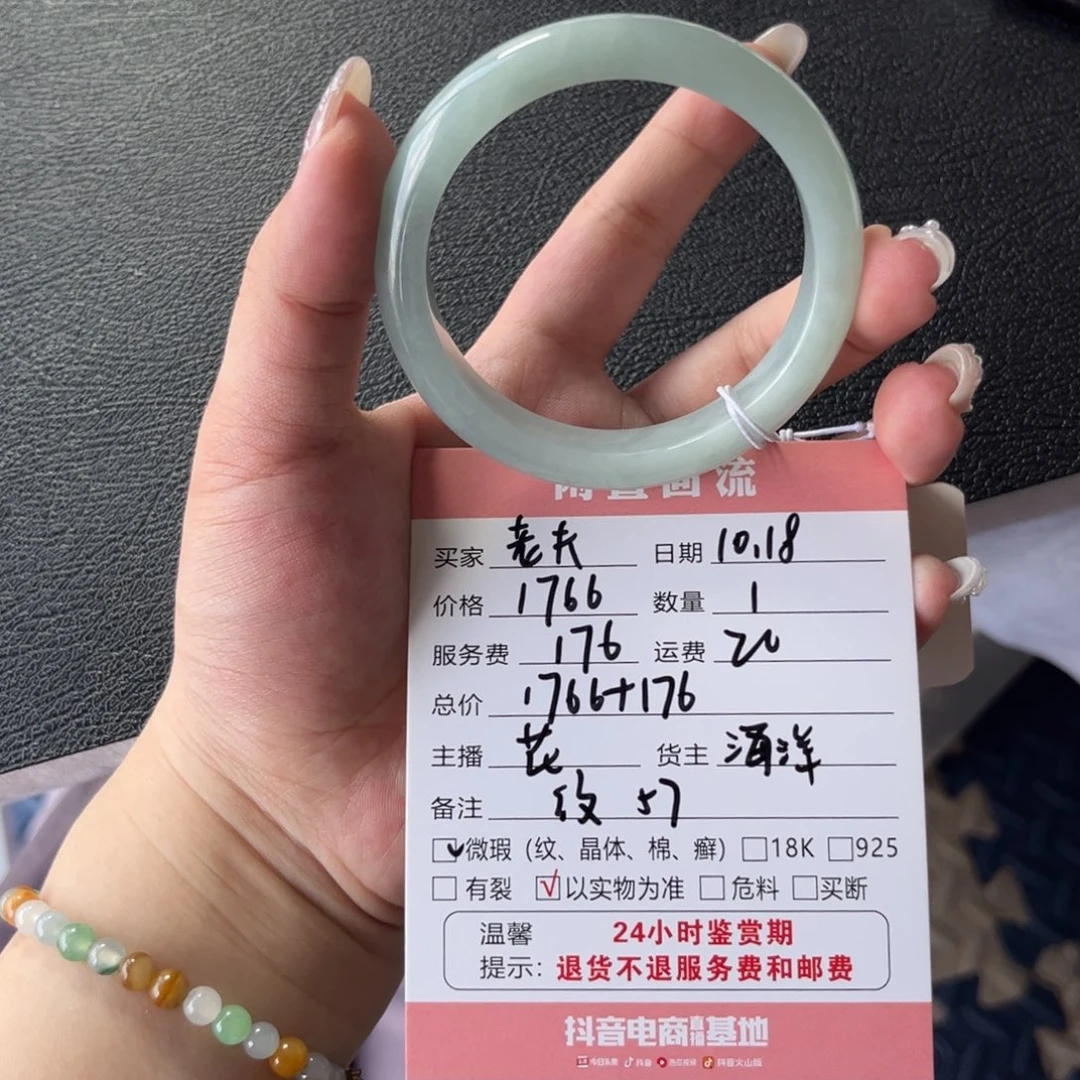 买家 老夫 日期 10.18
价格 1766 数量 1
服务费 176 运费 20
总价 1766+176
主播 花 货主 海洋
备注 纹 57
微瑕（纹、晶体、棉、癣） 18K 925
有裂 √以实物为准 危料 买断
温馨 24小时鉴赏期
提示：退货不退服务费和邮费
抖音电商直播基地
今日头条 抖音 西瓜视频 抖音火山版